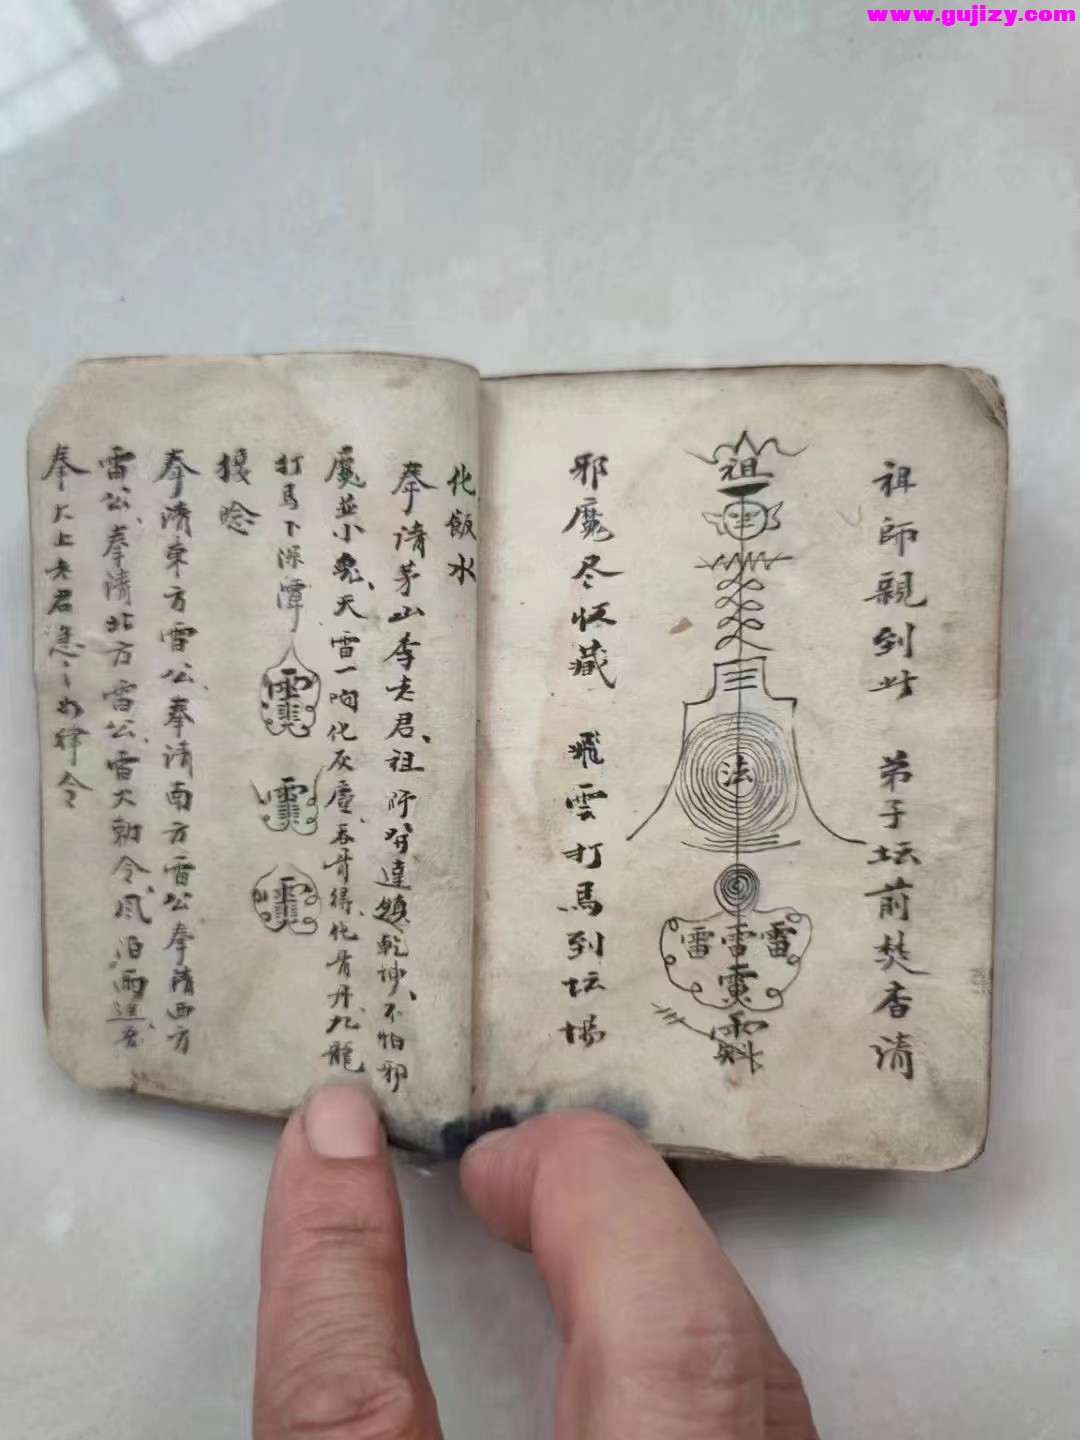 www.gujizy.com
祖師親到此 弟子坛前焚香请
祖
法
雷雷雷
邪魔尽收藏 飛雲打馬到坛場
化飯水
奉请茅山李老君、祖師 達 乾坤、不怕邪
魔並小鬼、天雷一响化灰塵、吞 得、化骨丹九龍
打馬下深潭
接唸
奉请東方雷公、奉请南方雷公、奉请西方
雷公、奉请北方雷公、雷大勅令、风 雨
奉 太上老君急〻如律令